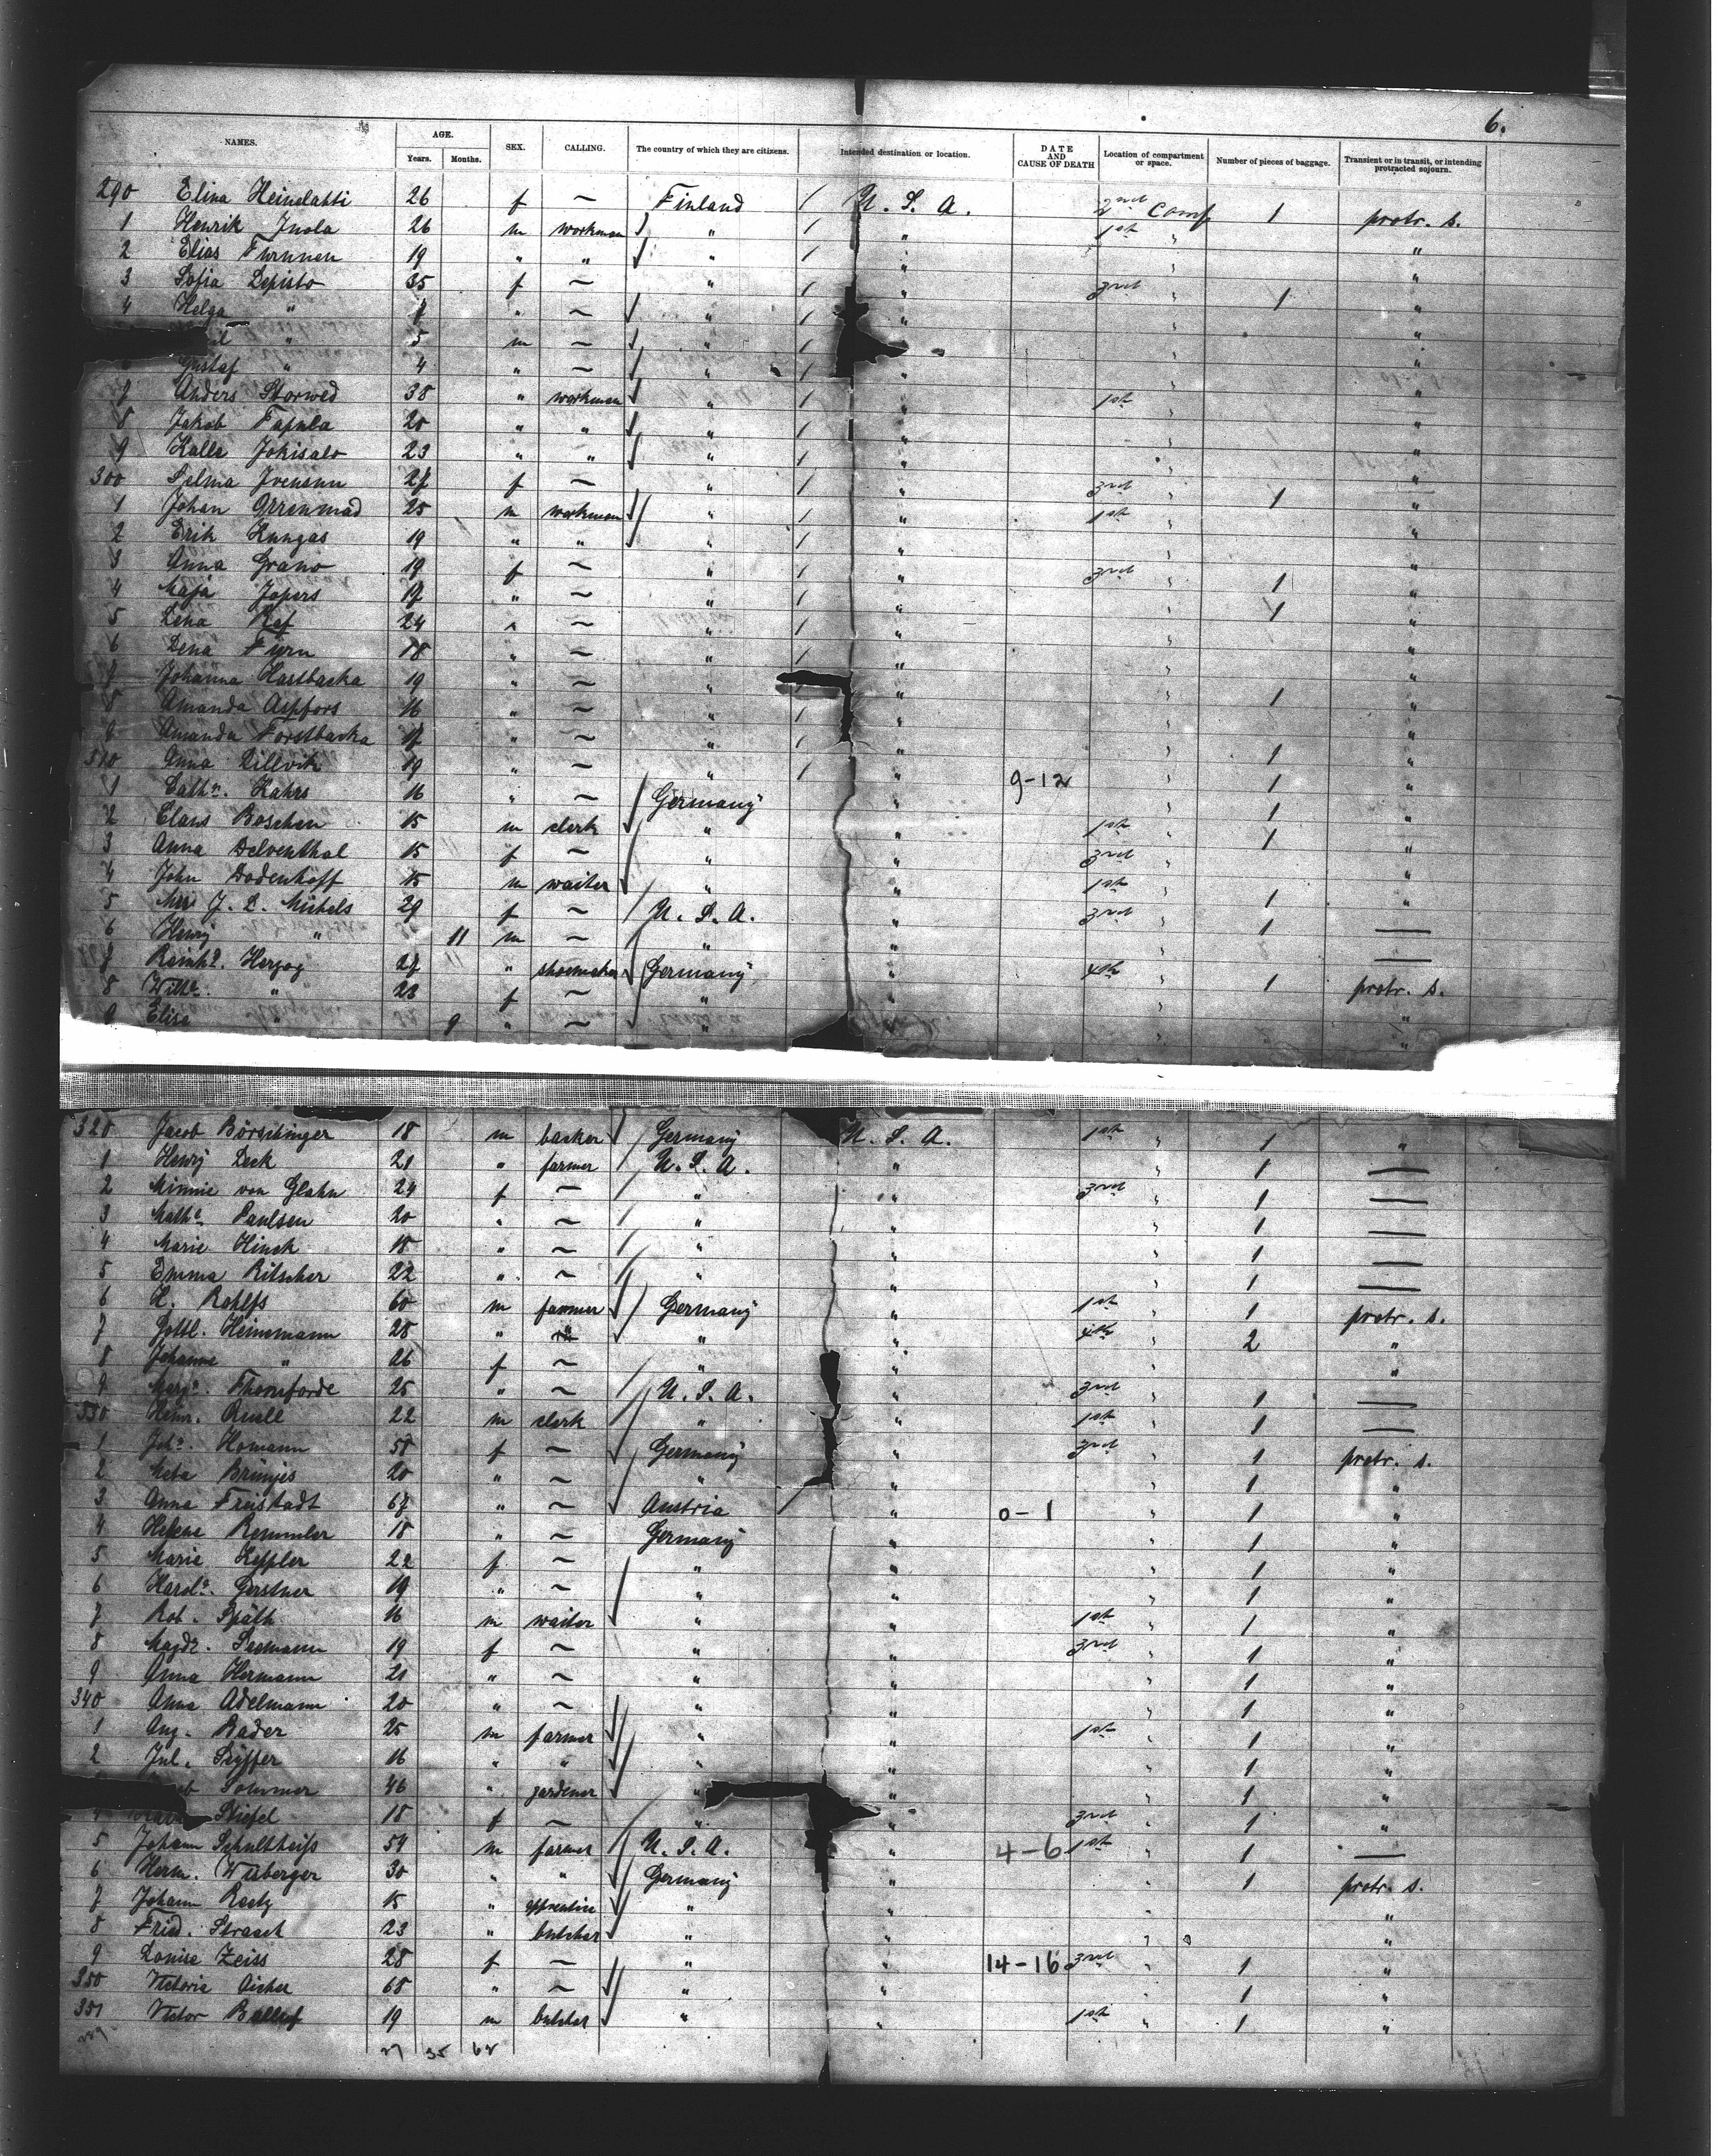 6.
NAMES. AGE. Years. Months. SEX. CALLING. The country of which they are citizens. Intended destination or location. DATE AND CAUSE OF DEATH Location of compartment or space. Number of pieces of baggage. Transient or in transit, or intending protracted sojourn.
290 Elina Heinelatti 26 f ~ Finland / U. S. A. 2nd Comp 1 protr. s.
1 Henrik Inola 26 m workman " / " 1st "
2 Elias Furunen 19 " " " / " " "
3 Sofia Lepisto 35 f ~ " / " 3rd " 1 "
4 Helga " 7 " ~ " / " " "
" 5 m ~ " / " "
Gustaf " 4 " ~ " / " " "
7 Anders Storwed 38 " workman " / " 1st " "
8 Jakob Fapula 20 " " " / " "
9 Kalle Jokisalo 23 " " " / " "
300 Selma Ivenson 27 f ~ " / " 3rd " 1 "
1 Johan 25 m workman " / " 1st " "
2 Erik Kungas 19 " " " / " "
3 Anna Grano 19 f ~ " / " 3rd " 1 "
4 Maja Jopers 17 " ~ " / " " 1 "
5 Lena Raf 24 " ~ " / " "
6 Lena Fyrn 18 " ~ " / " " "
7 Johanna Hastbacka 19 " ~ " " " 1 "
8 Amanda Aspfors 16 " ~ " / " " "
9 Amanda Forstbacka 17 " ~ " / " " 1 "
310 Anna Lillvik 19 " ~ " / " 9-12 " 1 "
1 Cathe. Kahrs 16 " ~ Germany " " 1 "
2 Claus Boschen 15 m clerk " " 1st " 1 "
3 Anna Delventhal 15 f ~ " " 3rd " "
4 John Dodenhoff 15 m waiter " " 1st " 1 "
5 Mrs J. L. Michels 29 f ~ U. S. A. " 3rd " 1 —
6 Henry " 11 m ~ " " —
7 Reinhd. Herzog 27 " shoemaker Germany " 4th " 1 protr. s.
8 Wilhe. " 23 f ~ " " " "
9 Elise " 9 " ~ " "
320 Jacob Börschinger 18 m backer Germany U. S. A. 1st " 1 "
1 Henry Deck 21 " farmer U. S. A. " " 1 —
2 Minnie von Glahn 24 f ~ " " 3rd " 1 —
3 Mathe Paulsen 20 " ~ " " " 1 —
4 Marie Hinck 18 " ~ " " " 1 —
5 Emma Ritscher 22 " ~ " " " 1 —
6 H. Rohlfs 60 m farmer Germany " 1st " 1 protr. s.
7 Gottl. Heinemann 28 " " " " 4th " 2 "
8 Johanne " 26 f ~ " " " "
9 Marge. Thomforde 25 " ~ U. S. A. " 3rd " 1 —
330 Heinr. 22 m clerk " " 1st " 1 —
1 Johe. Homann 58 f ~ Germany " 3rd " 1 protr. s.
2 Meta Brünjes 20 " ~ " " " 1 "
3 Anna Freistadt 67 " ~ Austria " 0-1 " 1 "
4 Helene Remmler 18 " ~ Germany " " 1 "
5 Marie Keppler 22 f ~ " " " 1 "
6 Karole. Gerstner 19 " ~ " " " 1 "
7 Rob. Späth 16 m waiter " " 1st " 1 "
8 Magde. Seemann 19 f ~ " " 3rd " 1 "
9 Anna Hermann 21 " ~ " " 1 "
340 Anna Adelmann 20 " ~ " " " 1 "
1 Aug. Bader 25 m farmer " " 1st " 1 "
2 Jul. Seyffer 16 " " " " " 1 "
Sommer 46 " gardener " " " 1 "
4 Stiefel 18 f ~ " " 3rd " 1 "
5 Johann Schultheiss 54 m farmer U. S. A. " 4-6 1st " 1 —
6 Herm. Wisberger 30 " " Germany " " 1 protr. s.
7 Johann Reetz 15 " apprentice " " " "
8 Fried. Strasch 23 " butcher " " " 0 "
9 Louise Zeiss 28 f ~ " " 14-16 3rd " 1 "
350 Victoria Aicher 68 " ~ " " " 1 "
351 Victor 19 m butcher " " 1st " 1 "
27 35 62